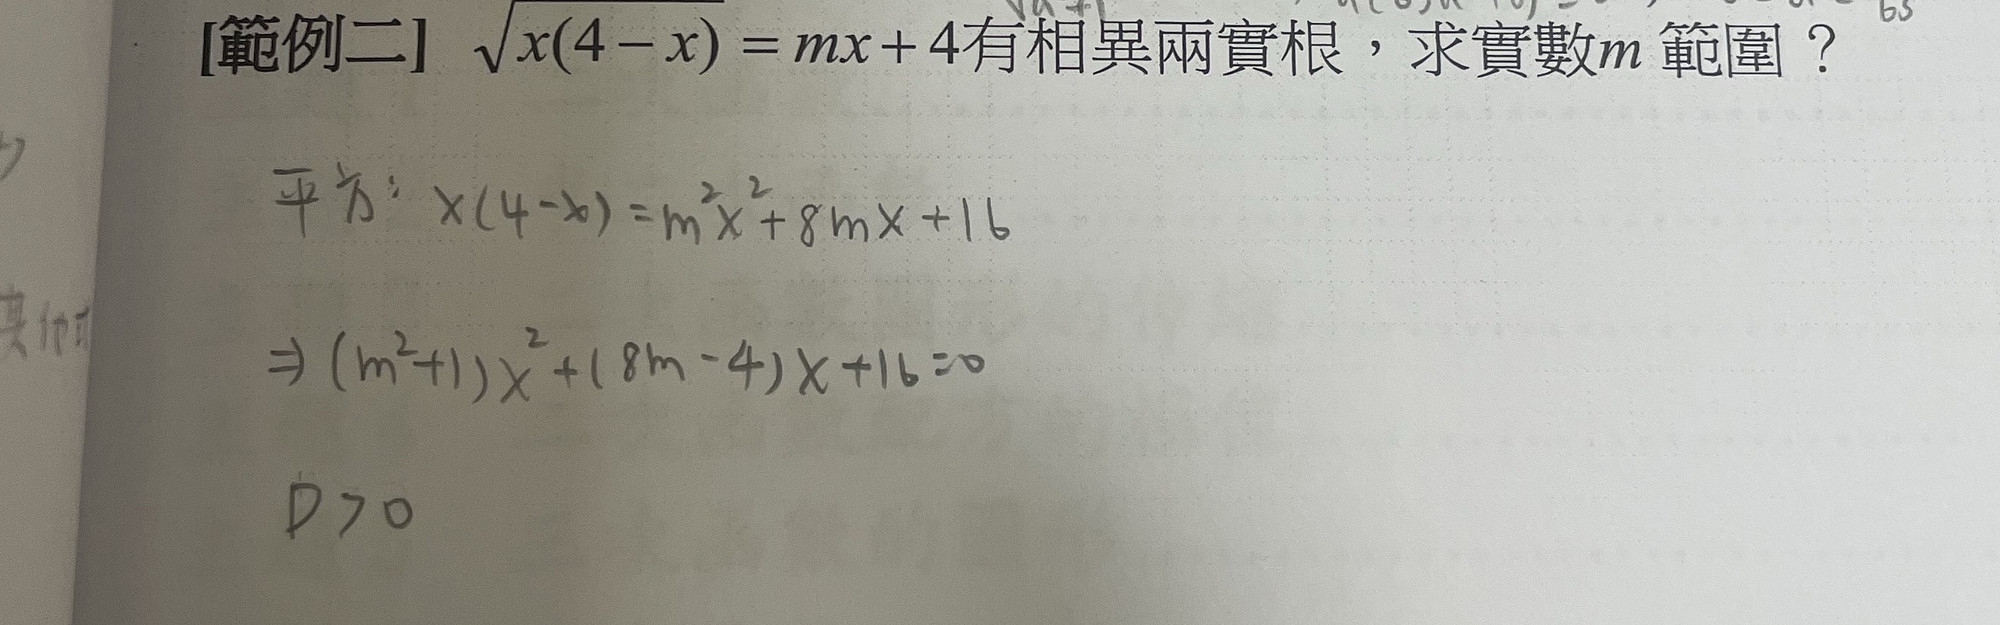 [範例二] √x(4－x) = mx＋4有相異兩實根，求實數m 範圍？
平方: x(4-x)=m²x²+8mx+16
⇒ (m²+1)x²+(8m-4)x+16=0
D>0